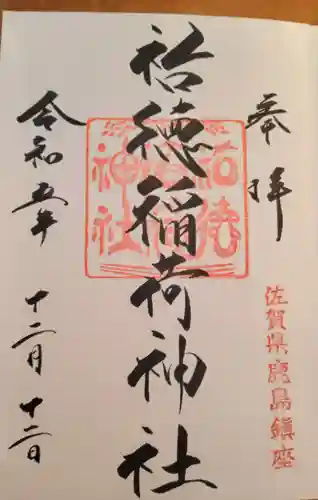 奉拝
佐賀県鹿島鎮座
祐徳稲荷神社
祐徳稲荷神社
令和五年
十二月十二日